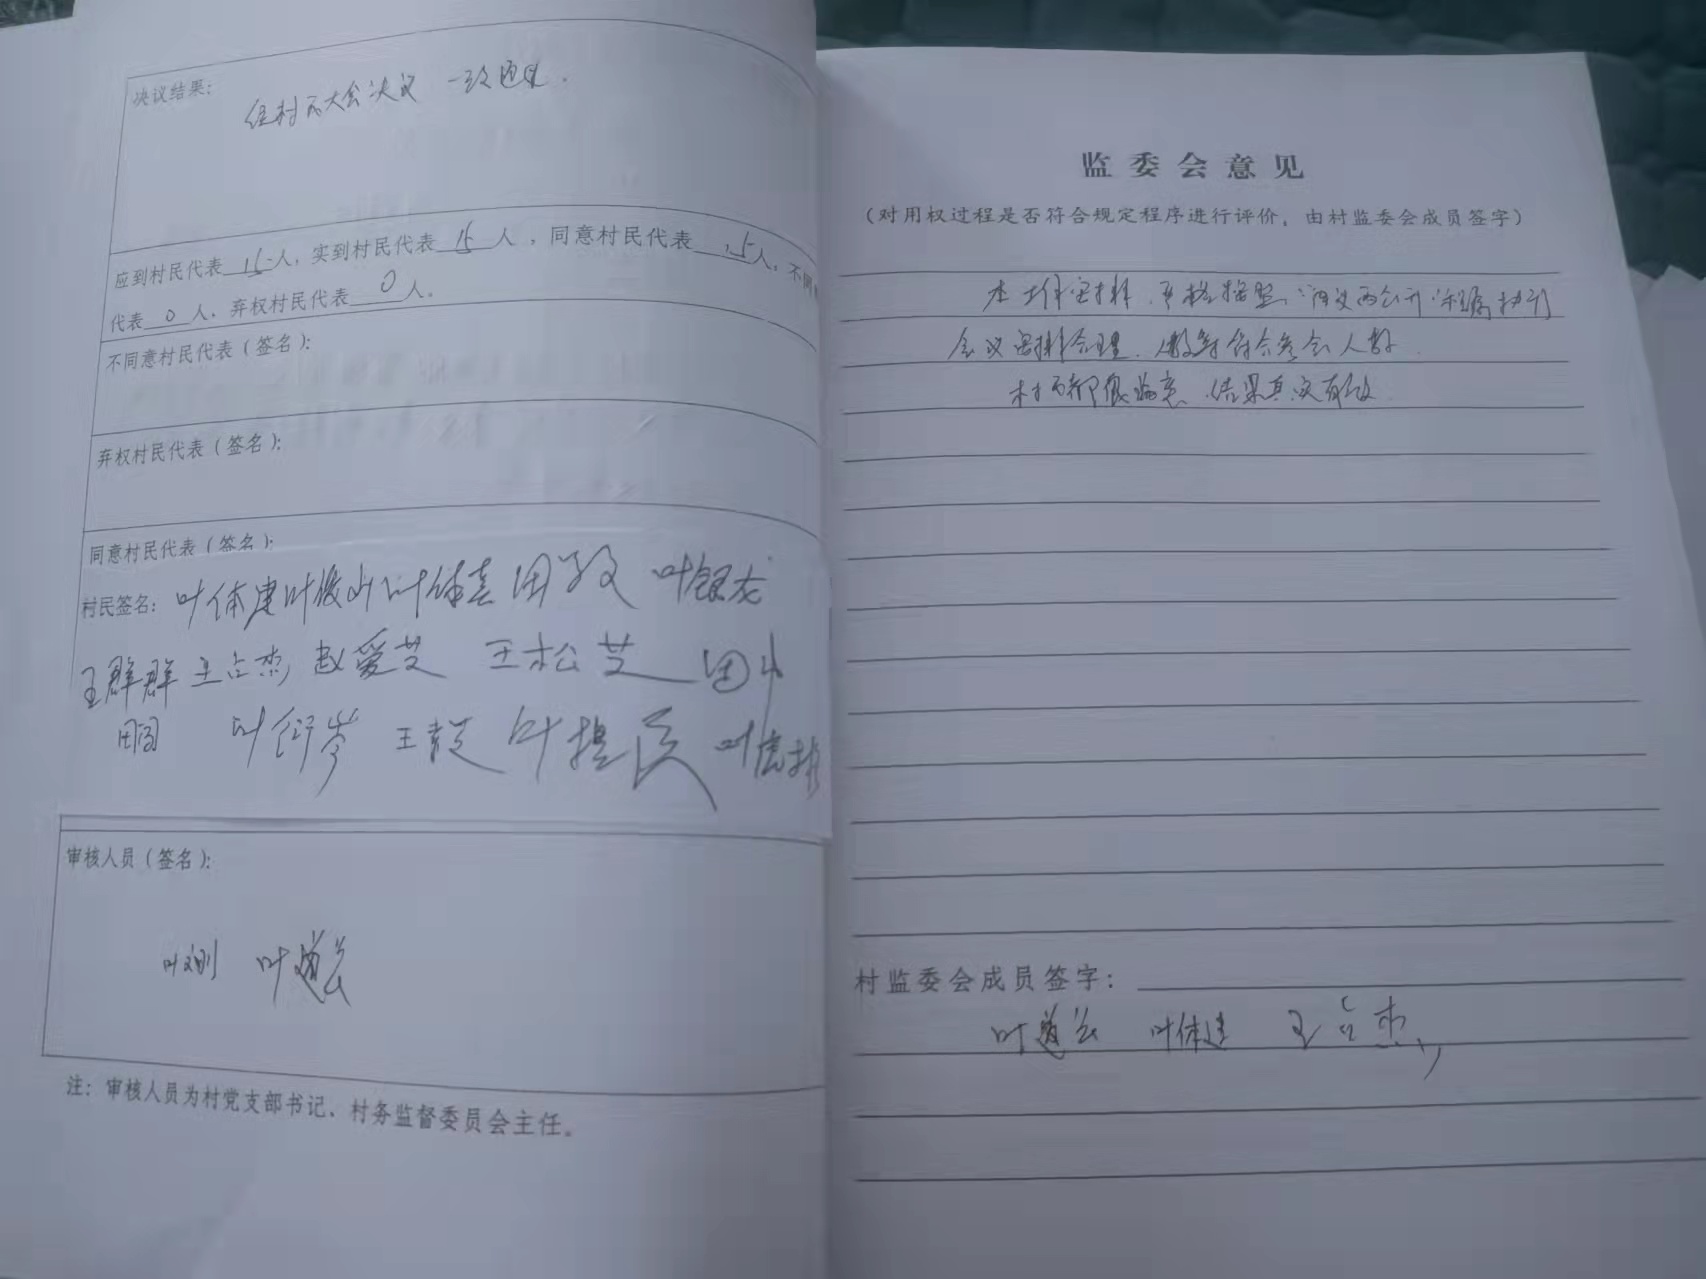 决议结果：
经村民大会决议 一致通过.
应到村民代表 15 人，实到村民代表 15 人，同意村民代表 15 人，不同
代表 0 人，弃权村民代表 0 人。
不同意村民代表（签名）：
弃权村民代表（签名）：
同意村民代表（签名）：
村民签名： 叶体建 叶俊山 叶体喜 田 叶银龙
王群群 王占杰 赵爱芝 王松芝 田
叶衍岑 王 叶提 叶
审核人员（签名）：
叶 叶道云
注：审核人员为村党支部书记、村务监督委员会主任。
监委会意见
（对用权过程是否符合规定程序进行评价，由村监委会成员签字）
严格按照 两公开
会议安排合理. 符合参会人数.
村民都很满意. 结果真实有效.
村监委会成员签字：
叶道云 叶体建 王占杰